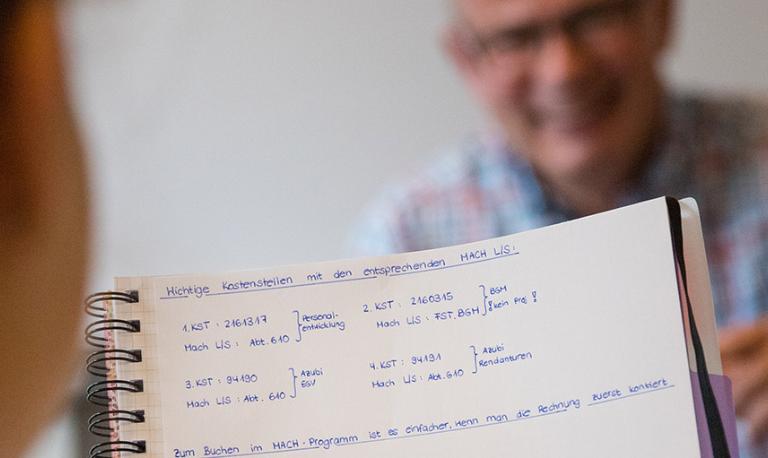 Wichtige Kostenstellen mit den entsprechenden MACH L/S:
1. KST : 2161317
Mach L/S : Abt. 610
Personal-
entwicklung
2. KST : 2160315
Mach L/S : FST, BGM
BGM
! kein Proj !
3. KST : 94190
Mach L/S : Abt. 610
Azubi
ESV
4. KST : 94191
Mach L/S : Abt. 610
Azubi
Rendanturen
Zum Buchen im MACH-Programm ist es einfacher, wenn man die Rechnung zuerst kontiert